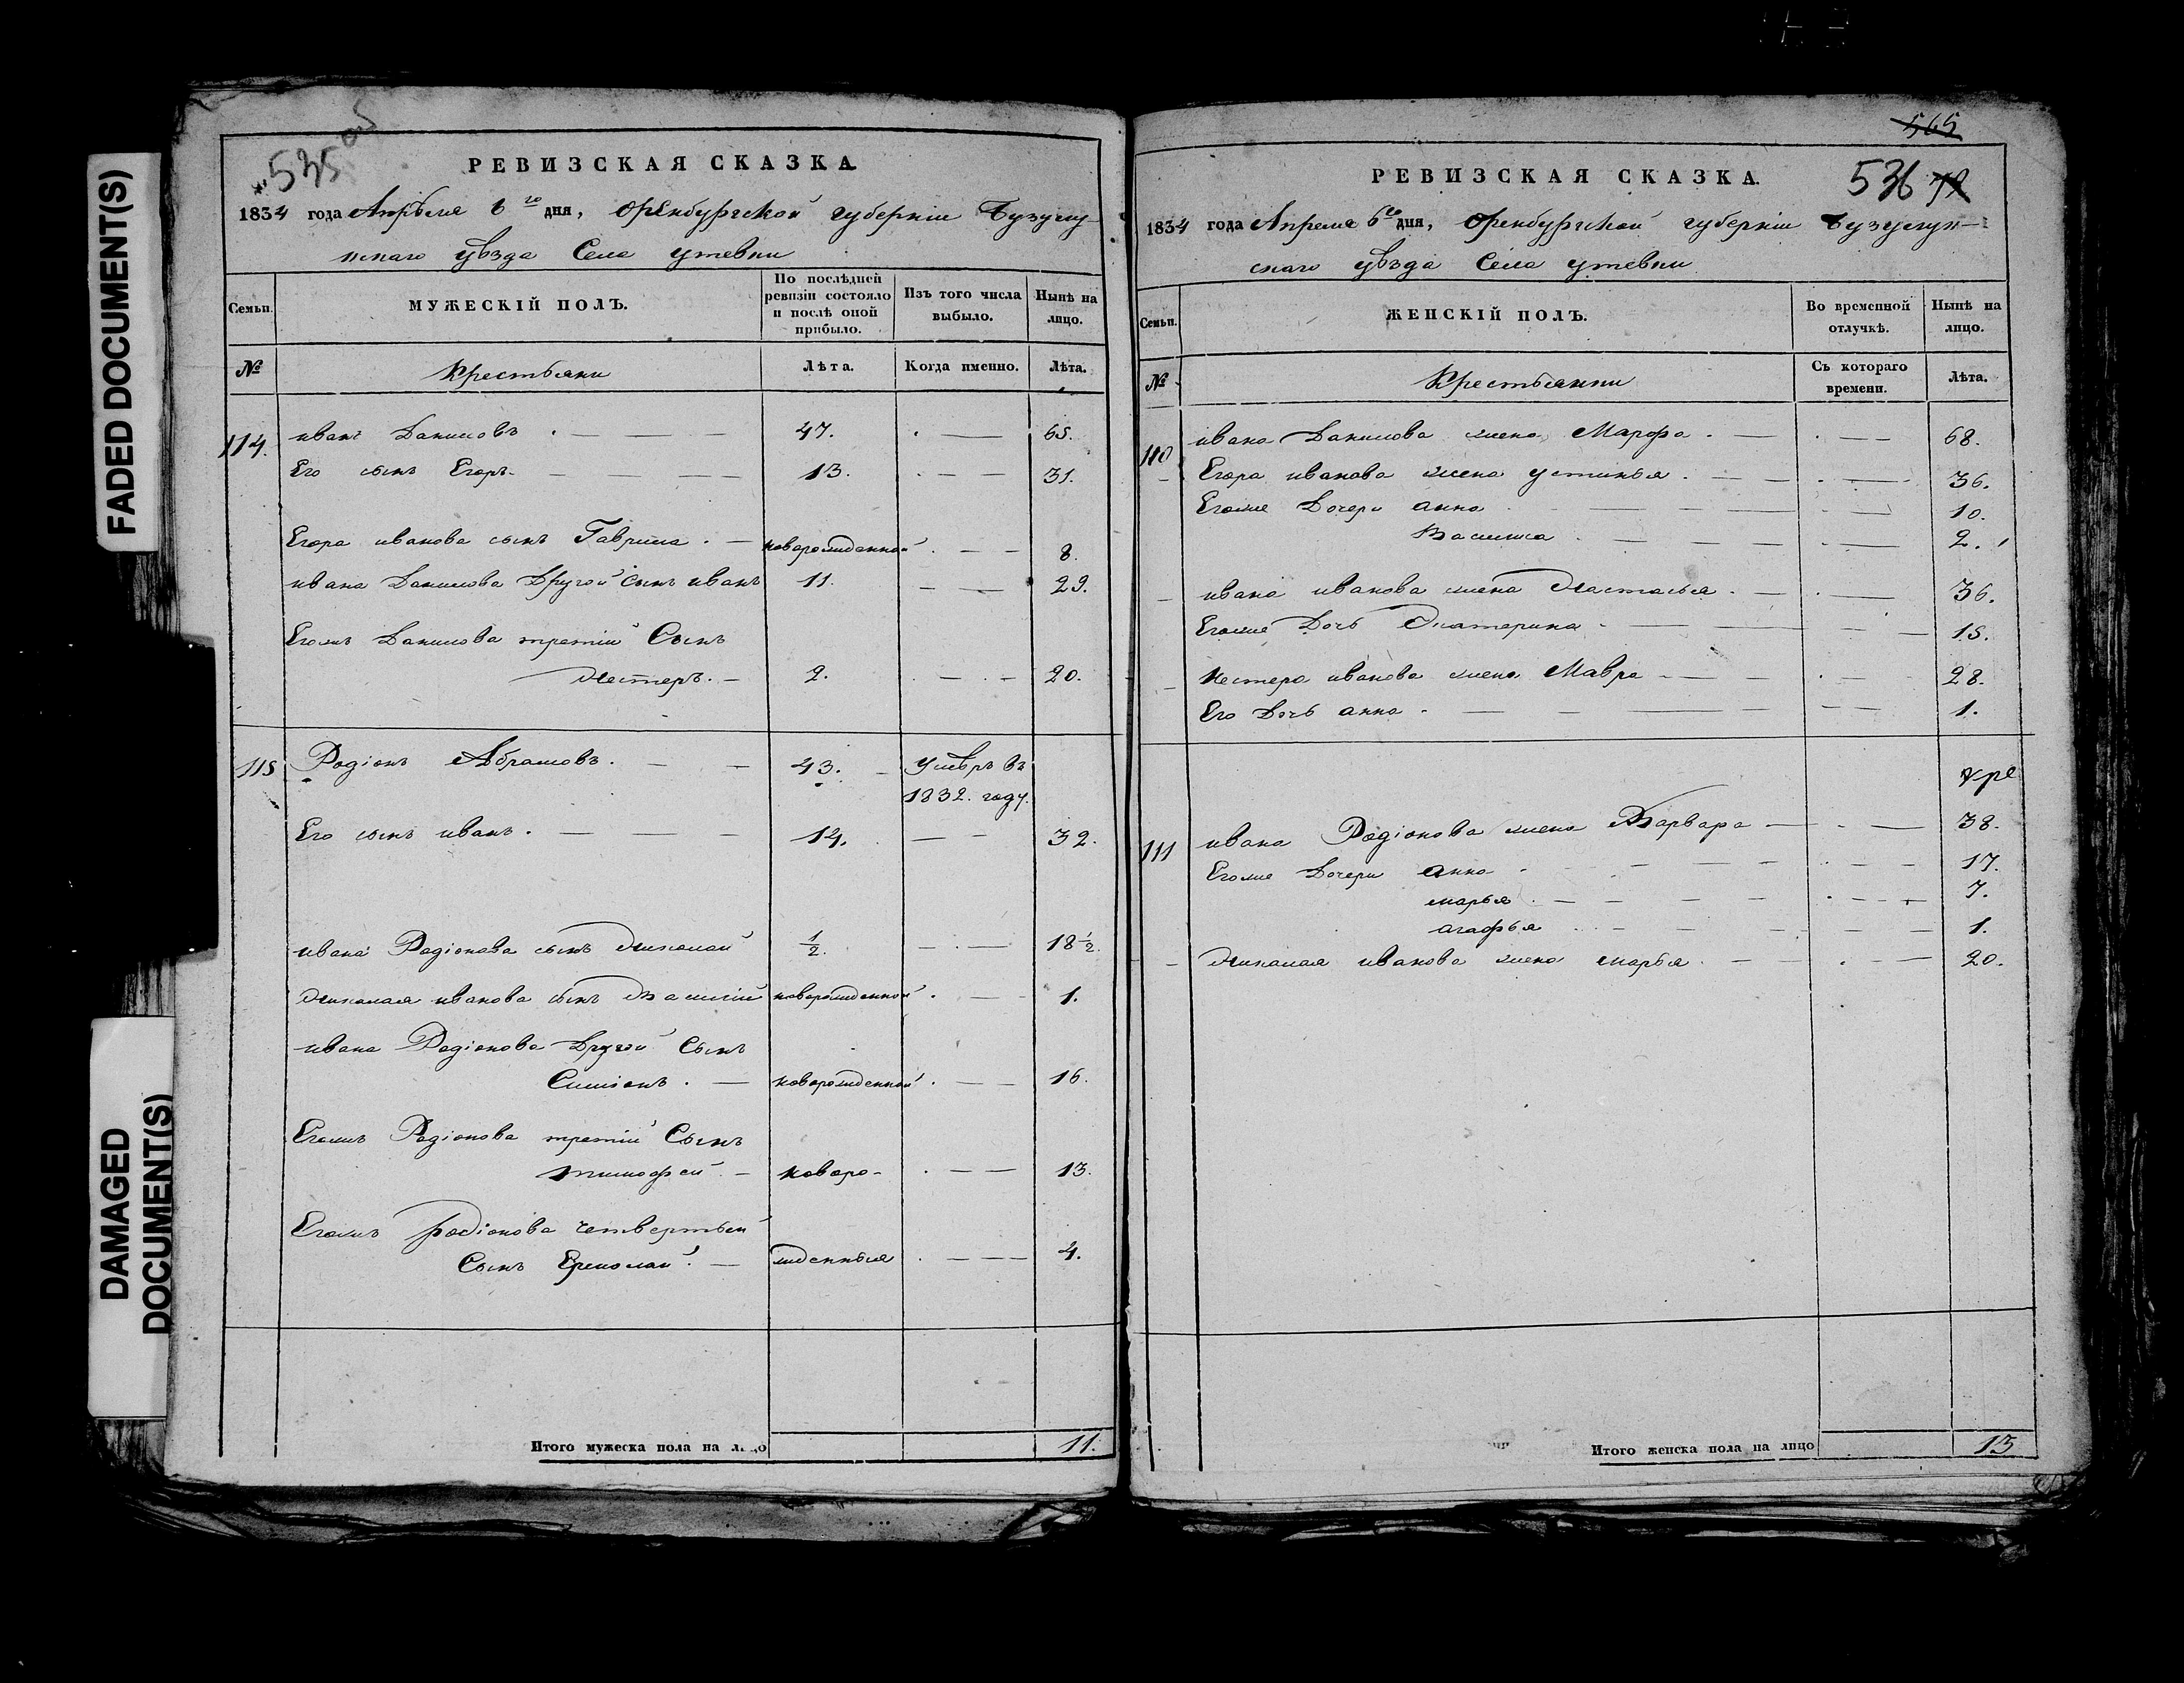 FADED DOCUMENT(S)
DAMAGED
DOCUMENT(S)
535 об
РЕВИЗСКАЯ СКАЗКА
1834 года Апреля 6 го дня, Оренбургской губерніи Бузулу-
кскаго уѣзда Села утевки
Семьи. МУЖЕСКІЙ ПОЛЪ. По послѣдней ревизіи состояло и послѣ оной прибыло. Изъ того числа выбыло. Нынѣ на лицо.
№ Крестьяни Лѣта. Когда именно. Лѣта.
114. иванъ Даниловъ 47. 65.
Его сынъ Егоръ 13. 31.
Егора иванова сынъ Гаврила новорожденной 8.
ивана Данилова Другой сынъ иванъ 11. 29.
Егожъ Данилова третій Сынъ
Нестеръ 2. 20.
115 Родіонъ Абрамовъ 43. умеръ въ
1832. году.
Его сынъ иванъ 14. 32.
ивана Родіонова сынъ Николай 1/2. 18 1/2.
Николая иванова сынъ Василій новорожденной 1.
ивана Родіонова Другой Сынъ
Симіонъ новорожденной 16.
Егожъ Родіонова третій Сынъ
тимофей новоро- 13.
Егожъ родіонова четвертый
Сынъ Ермолай жденныя 4.
Итого мужеска пола на лицо 11.
565
536
РЕВИЗСКАЯ СКАЗКА.
1834 года Апреля 6 го дня, Оренбургской губерніи Бузулук-
скаго уѣзда Села утевки
Семьи. ЖЕНСКІЙ ПОЛЪ. Во временной отлучкѣ. Нынѣ на лицо.
№ Крестьянки Съ котораго времени. Лѣта.
110 ивана Данилова жена Марфа 68.
Егора иванова жена устинья 36.
Егоже Дочери анна 10.
Василиса 2.
ивана иванова жена Настасья 36.
Егоже Дочь Екатерина 15.
Нестера иванова жена Мавра 28.
Его Дочь анна 1.
111 ивана Родіонова жена Варвара 38.
Егоже Дочери анна 17.
марья 7.
агафья 1.
Николая иванова жена марья 20.
Итого женска пола на лицо 13